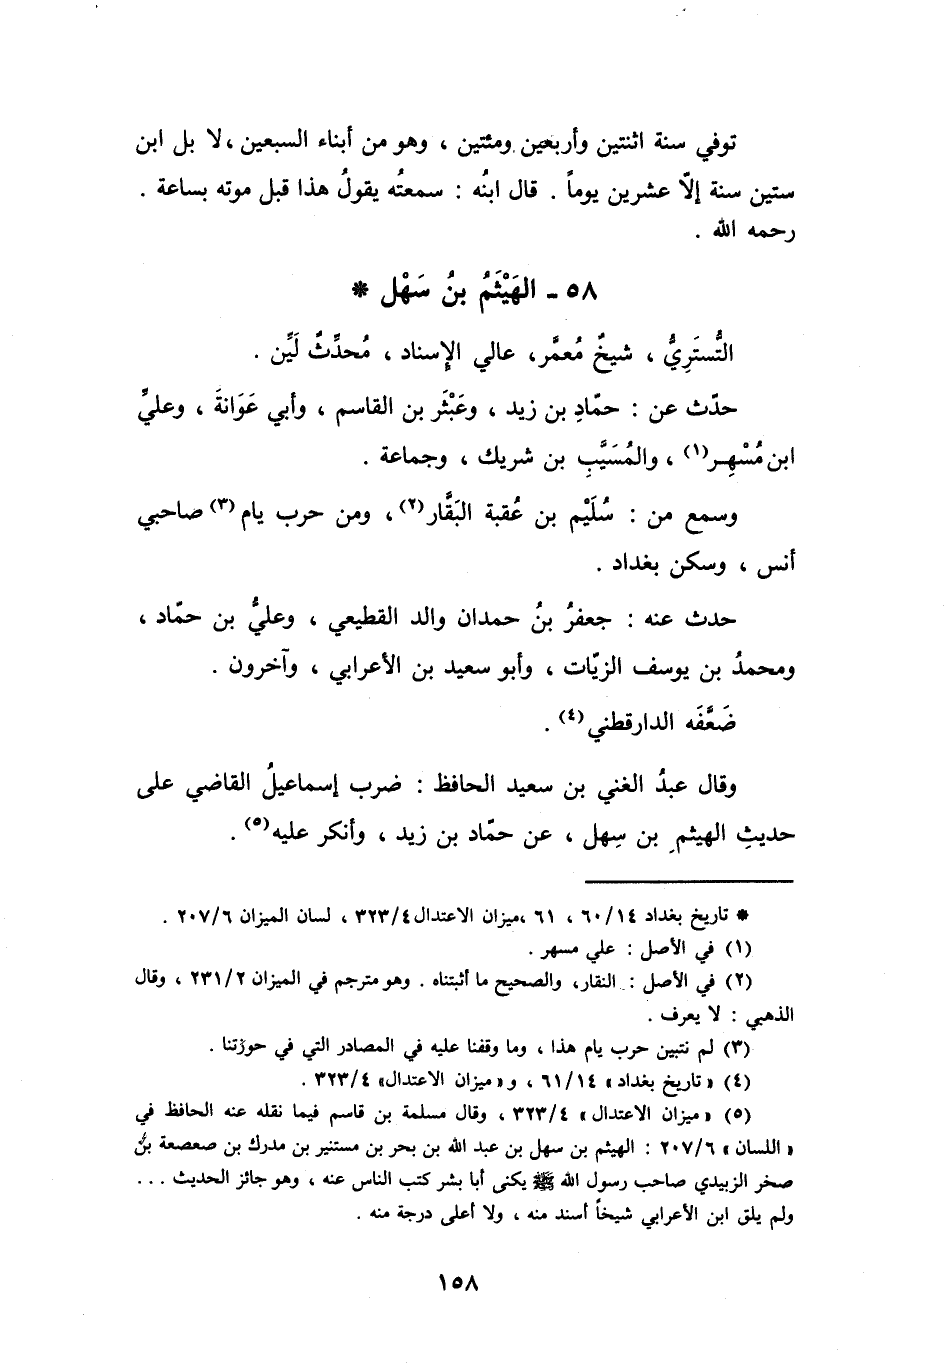 توفي سنة اثنتين وأربعين ومئتين ، وهو من أبناء السبعين ، لا بل ابن
ستين سنة إلّا عشرين يوماً . قال ابنُه : سمعتُه يقولُ هذا قبل موته بساعة .
رحمه الله .
٥٨ - الهَيْثَمُ بنُ سَهْل *
التُّستَرِيُّ ، شيخٌ مُعمَّر، عالي الإسناد ، مُحدِّثٌ لَيِّن .
حدّث عن : حمّادِ بن زيد ، وعَبْثَر بن القاسم ، وأبي عَوَانةَ ، وعليِّ
ابن مُسْهِـر(١) ، والمُسَيَّبِ بن شريك ، وجماعة .
وسمع من : سُلَيْم بن عُقبة البَقَّار(٢) ، ومن حرب يام(٣) صاحبي
أنس ، وسكن بغداد .
حدث عنه : جعفرُ بنُ حمدان والد القطيعي ، وعليُّ بن حمّاد ،
ومحمدُ بن يوسف الزيّات ، وأبو سعيد بن الأعرابي ، وآخرون .
ضَعَّفَه الدارقطني(٤) .
وقال عبدُ الغني بن سعيد الحافظ : ضرب إسماعيلُ القاضي على
حديثِ الهيثمِ بن سِهل ، عن حمّاد بن زيد ، وأنكر عليه(٥) .
* تاريخ بغداد ١٤/ ٦٠ ، ٦١ ، ميزان الاعتدال ٤/ ٣٢٣ ، لسان الميزان ٦/ ٢٠٧ .
(١) في الأصل : علي مسهر .
(٢) في الأصل : النقار، والصحيح ما أثبتناه . وهو مترجم في الميزان ٢/ ٢٣١ ، وقال
الذهبي : لا يعرف .
(٣) لم نتبين حرب يام هذا ، وما وقفنا عليه في المصادر التي في حوزتنا .
(٤) « تاريخ بغداد » ١٤/ ٦١ ، و« ميزان الاعتدال» ٤/ ٣٢٣ .
(٥) « ميزان الاعتدال » ٤/ ٣٢٣ ، وقال مسلمة بن قاسم فيما نقله عنه الحافظ في
« اللسان » ٦/ ٢٠٧ : الهيثم بن سهل بن عبد الله بن بحر بن مستنير بن مدرك بن صعصعة بن
صخر الزبيدي صاحب رسول الله ﷺ يكنى أبا بشر كتب الناس عنه ، وهو جائز الحديث . . .
ولم يلق ابن الأعرابي شيخاً أسند منه ، ولا أعلى درجة منه .
١٥٨